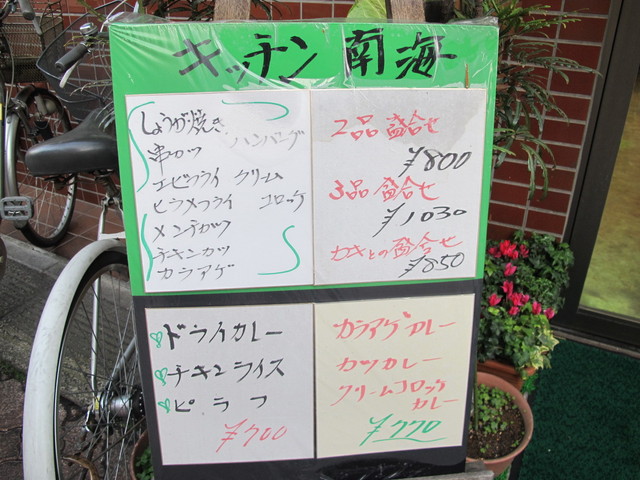 キッチン 南海
しょうが焼き
ハンバーグ
串カツ
エビフライ クリーム
ヒラメフライ コロッケ
メンチカツ
チキンカツ
カラアゲ
2品盛合せ
¥800
3品盛合せ
¥1030
カキとの盛合せ
¥850
ドライカレー
チキンライス
ピラフ
¥700
カラアゲカレー
カツカレー
クリームコロッケ
カレー
¥770